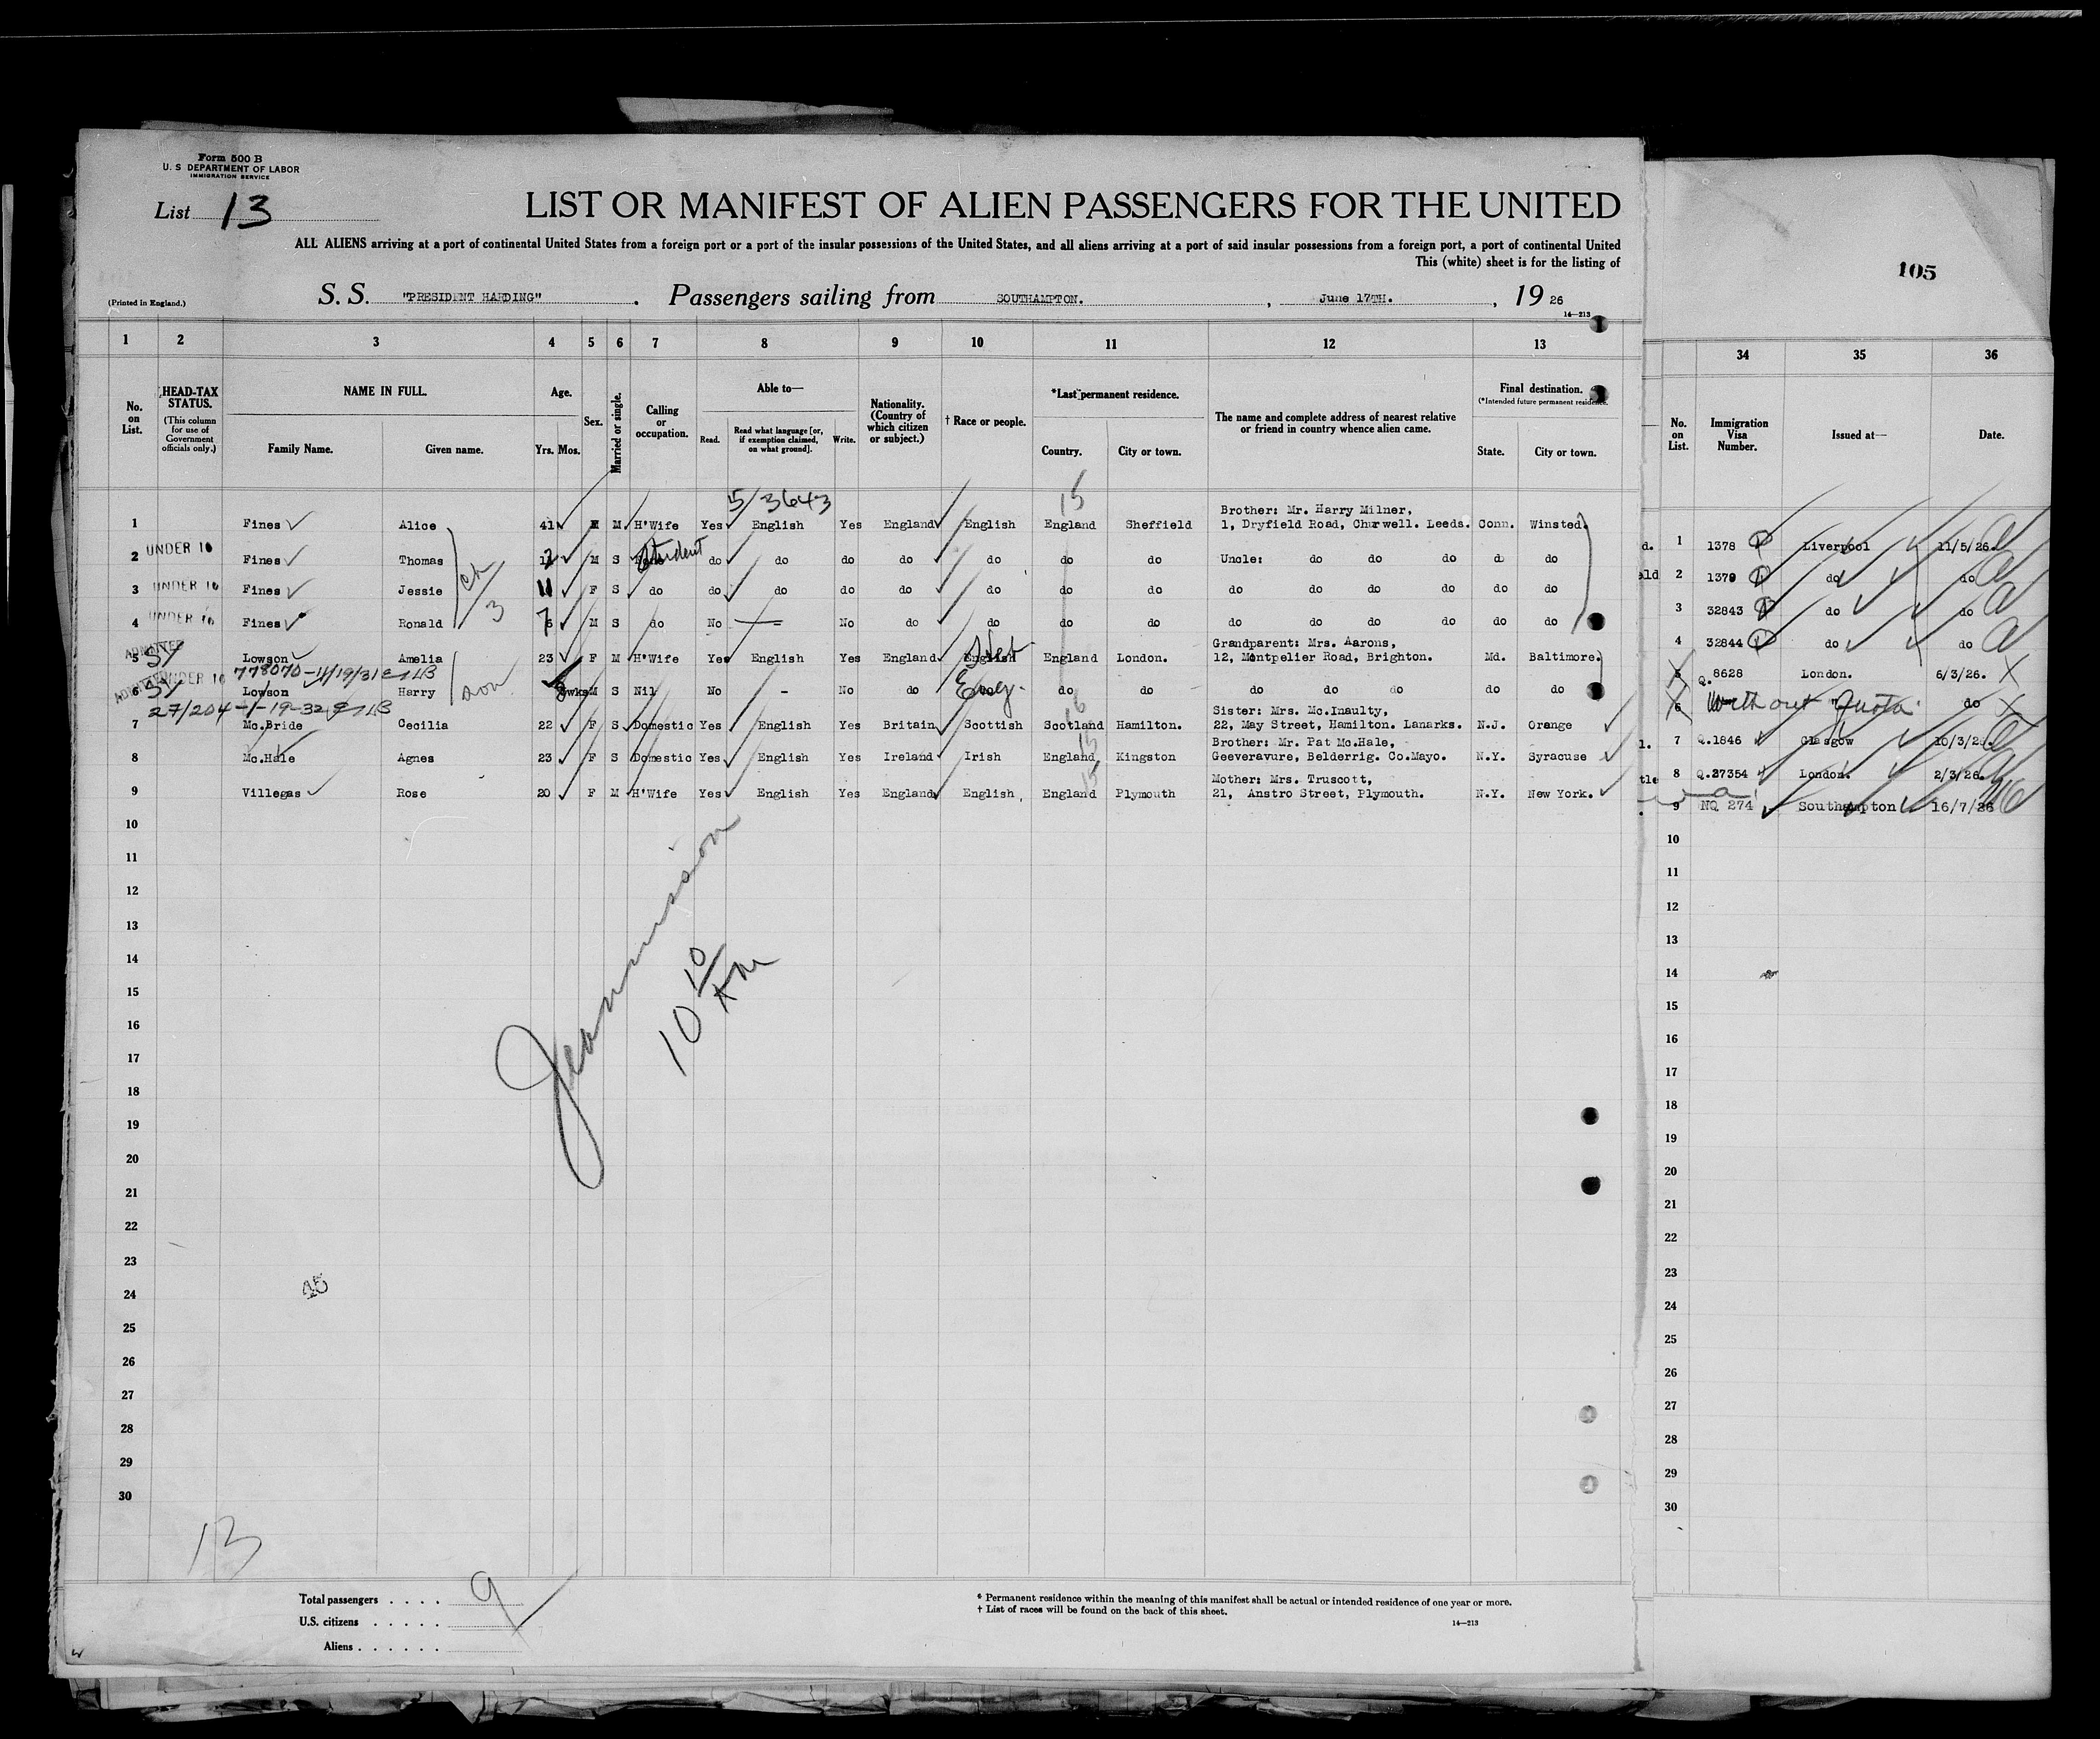 Form 500 B
U. S DEPARTMENT OF LABOR
IMMIGRATION SERVICE
List 13
LIST OR MANIFEST OF ALIEN PASSENGERS FOR THE UNITED
ALL ALIENS arriving at a port of continental United States from a foreign port or a port of the insular possessions of the United States, and all aliens arriving at a port of said insular possessions from a foreign port, a port of continental United
This (white) sheet is for the listing of
105
(Printed in England.)
S. S. "PRESIDENT HARDING" . Passengers sailing from SOUTHAMPTON. , June 17TH. , 19 26
14—213
1 2 3 4 5 6 7 8 9 10 11 12 13 34 35 36
No. on List.
HEAD-TAX STATUS.
(This column for use of Government officials only.)
NAME IN FULL.
Family Name. Given name.
Age.
Yrs. Mos.
Sex.
Married or single.
Calling or occupation.
Able to—
Read. Read what language [or, if exemption claimed, on what ground]. Write.
Nationality. (Country of which citizen or subject.)
† Race or people.
*Last permanent residence.
Country. City or town.
The name and complete address of nearest relative or friend in country whence alien came.
Final destination.
(*Intended future permanent residence.
State. City or town.
No. on List.
Immigration Visa Number.
Issued at—
Date.
5/3643 15
Brother: Mr. Harry Milner,
1 Fines Alice 41 M H'Wife Yes English Yes England English England Sheffield 1, Dryfield Road, Churwell. Leeds. Conn. Winsted.
2 UNDER 16 Fines Thomas 12 M S Student do do do do do do do Uncle: do do do do do
3 UNDER 16 Fines Jessie 11 F S do do do do do do do do do do do do do do
ch/3
4 UNDER 16 Fines Ronald 7 M S do No — No do do do do do do do do do do
Grandparent: Mrs. Aarons,
ADMITTED
5 SY Lowson Amelia 23 F M H'Wife Yes English Yes England English England London. 12, Montpelier Road, Brighton. Md. Baltimore.
778070-11/19/31
6 SY UNDER 16 Lowson Harry son 8wks M S Nil No - No do do do do do do do do
27/204-1-19-32
Sister: Mrs. Mc.Inaulty,
7 Mc.Bride Cecilia 22 F S Domestic Yes English Yes Britain Scottish Scotland Hamilton. 22, May Street, Hamilton. Lanarks. N.J. Orange
Brother: Mr. Pat Mc.Hale,
8 Mc.Hale Agnes 23 F S Domestic Yes English Yes Ireland Irish England Kingston Geeveravure, Belderrig. Co.Mayo. N.Y. Syracuse
Mother: Mrs. Truscott,
9 Villegas Rose 20 F M H'Wife Yes English Yes England English England Plymouth 21, Anstro Street, Plymouth. N.Y. New York.
1 1378 Liverpool 11/5/26.
2 1379 do do
3 32843 do do
4 32844 do do
5 Q.8628 London. 6/3/26.
6 Without Quota do
7 Q.1846 Glasgow 10/3/2
8 Q.27354 London. 2/3/26.
9 NQ 274 Southampton 16/7/26
10
11
12
13
14
15
16
17
18
19
20
21
22
23
24
25
26
27
28
29
30
10
11
12
13
14
15
16
17
18
19
20
21
22
23
24
25
26
27
28
29
30
13
Total passengers . . . . 9
U.S. citizens . . . . .
Aliens . . . . . .
* Permanent residence within the meaning of this manifest shall be actual or intended residence of one year or more.
† List of races will be found on the back of this sheet.
14—213